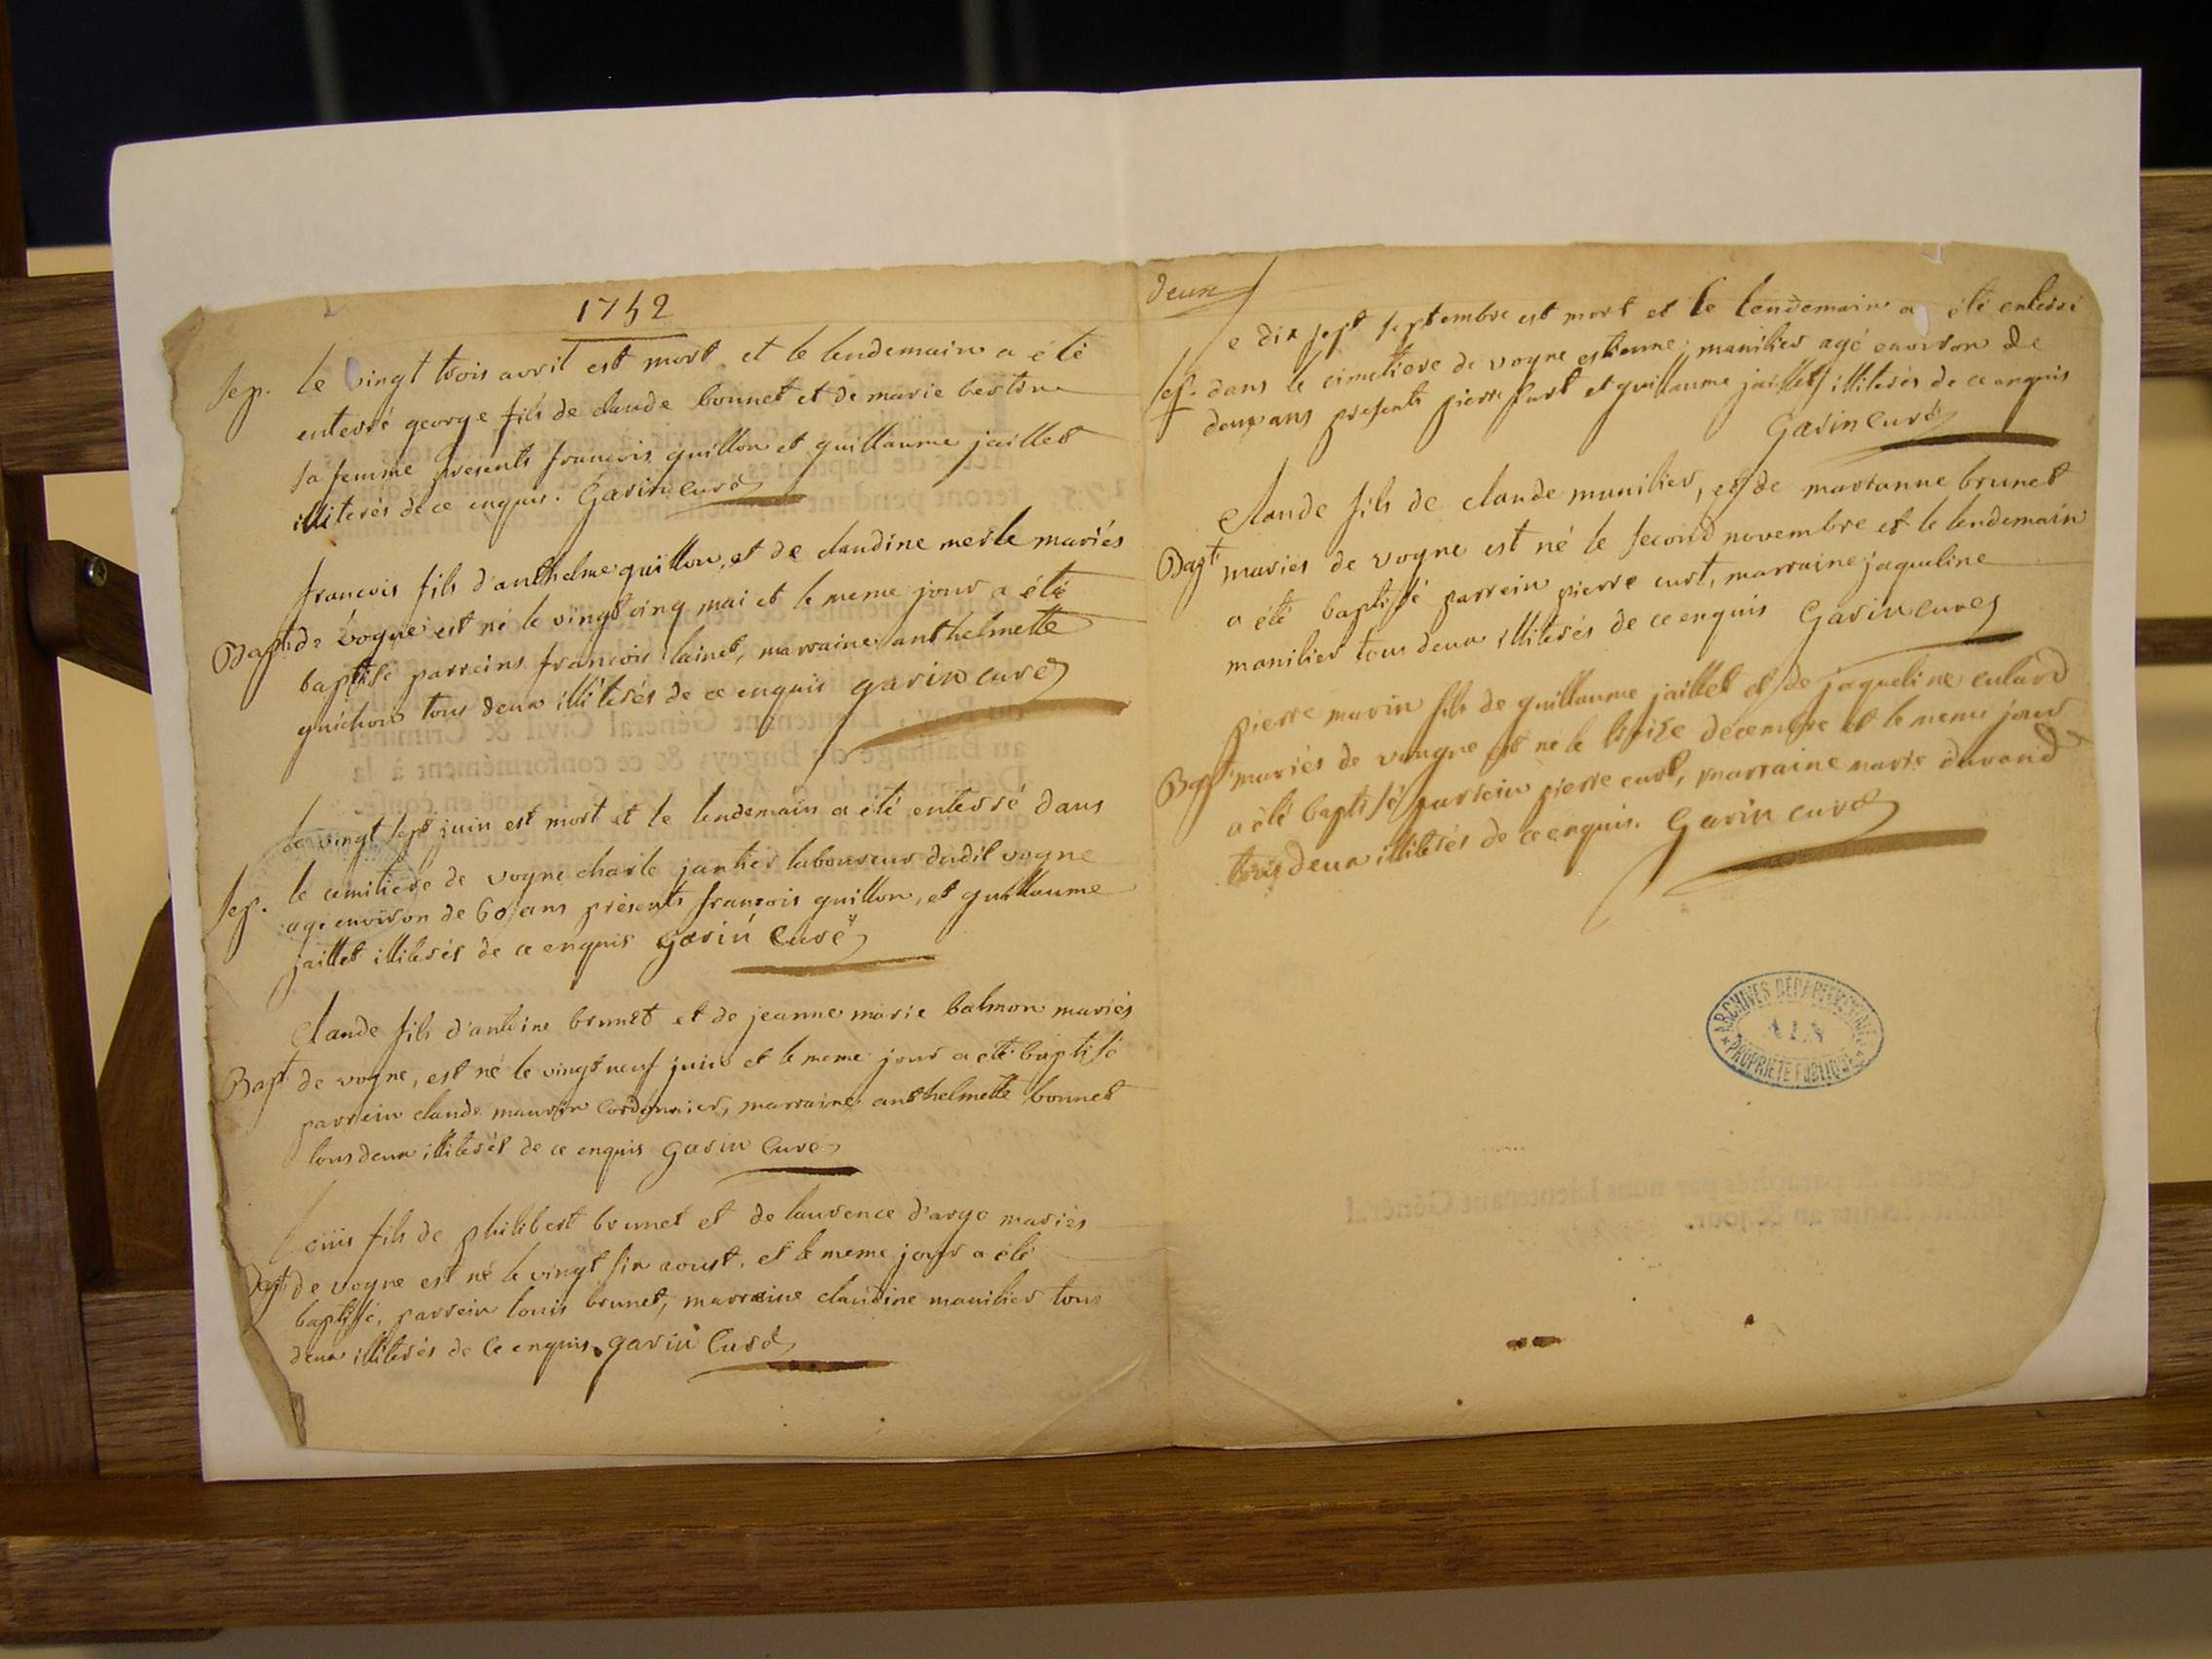 1752
Sep. le vingt trois avril est mort et le lendemain a été
enterré george fils de claude bonnet et de marie berton
sa femme presents francois guillon et guillaume jaillet
illiterés de ce enquis. Garin curé
francois fils d'anthelme guillon, et de claudine merle mariés
Bapt. de vogne est né le vingt cinq mai et le meme jour a été
baptisé parreins francois lainet, marraine anthelmette
guichon tous deux illiterés de ce enquis garin curé
le vingt sept juin est mort et le lendemain a été enterré dans
Sep. le cimitiere de vogne charle jantier laboureur dudit vogne
agé environ de 60 ans présents francois guillon, et guillaume
jaillet illiterés de ce enquis garin curé
Claude fils d'antoine brunet et de jeanne marie balmon mariés
Bapt de vogne, est né le vingt neuf juin et le meme jour a été baptisé
parrein claude mauvin cordonnier, marraine anthelmette bonnet
tous deux illiterés de ce enquis garin curé
Louis fils de philibert brunet et de laurence d'arge mariés
Bapt. de vogne est né le vingt six aoust, et le meme jour a été
baptisé, parrein louis brunet, marraine claudine manilier tous
deux illiterés de ce enquis garin curé
deux
Le dix sept septembre est mort et le lendemain a été enterré
Sep. dans le cimetiere de vogne estienne manilier agé environ de
deux ans presents pierre curt et guillaume jaillet illiterés de ce enquis
Garin curé
Claude fils de claude manilier, et de marianne brunet
Bapt mariés de vogne est né le second novembre et le lendemain
a été baptisé parrein pierre curt, marraine jaqueline
manilier tous deux illiterés de ce enquis Garin curé
pierre marin fils de guillaume jaillet et de jaqueline culard
Bapt mariés de vougne est né le treize decembre et le meme jour
a été baptisé parrein pierre curt, marraine marie durand
tous deux illiterés de ce enquis. Garin curé
ARCHIVES DÉPARTEMENTALES
AIN
PROPRIÉTÉ PUBLIQUE